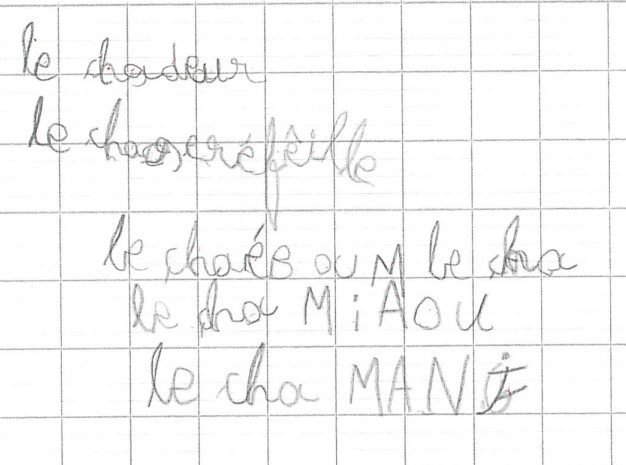 le chadeur
le chaseréfêille
le chaéB OU M le cha
le cha MiAOU
le cha MAN